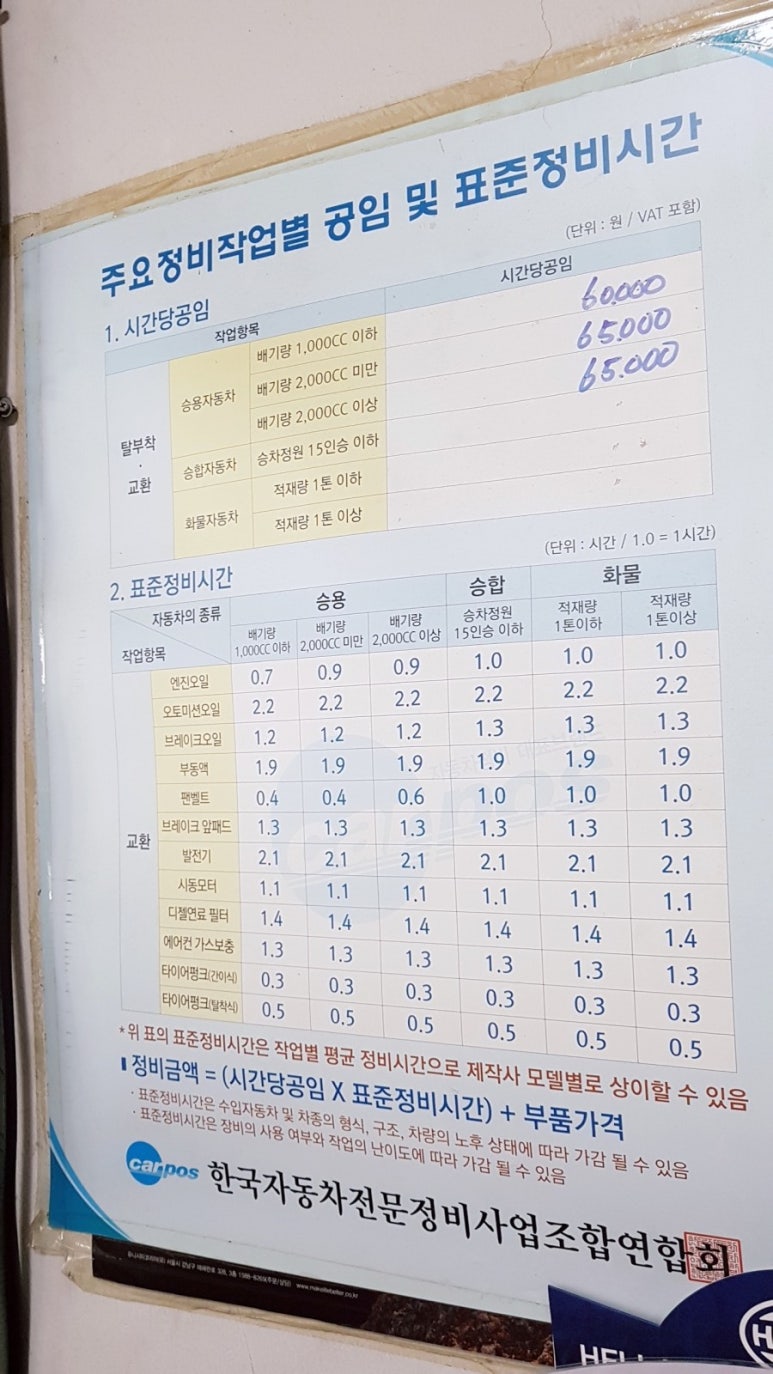 주요정비작업별 공임 및 표준정비시간
(단위 : 원 / VAT 포함)
1. 시간당공임
작업항목 시간당공임
탈부착 · 교환
승용자동차 배기량 1,000CC 이하 60.000
배기량 2,000CC 미만 65.000
배기량 2,000CC 이상 65.000
승합자동차 승차정원 15인승 이하
화물자동차 적재량 1톤 이하
적재량 1톤 이상
(단위 : 시간 / 1.0 = 1시간)
2. 표준정비시간
자동차의 종류 승용 승합 화물
작업항목 배기량 1,000CC 이하 배기량 2,000CC 미만 배기량 2,000CC 이상 승차정원 15인승 이하 적재량 1톤이하 적재량 1톤이상
교환
엔진오일 0.7 0.9 0.9 1.0 1.0 1.0
오토미션오일 2.2 2.2 2.2 2.2 2.2 2.2
브레이크오일 1.2 1.2 1.2 1.3 1.3 1.3
부동액 1.9 1.9 1.9 1.9 1.9 1.9
팬벨트 0.4 0.4 0.6 1.0 1.0 1.0
브레이크 앞패드 1.3 1.3 1.3 1.3 1.3 1.3
발전기 2.1 2.1 2.1 2.1 2.1 2.1
시동모터 1.1 1.1 1.1 1.1 1.1 1.1
디젤연료 필터 1.4 1.4 1.4 1.4 1.4 1.4
에어컨 가스보충 1.3 1.3 1.3 1.3 1.3 1.3
타이어펑크(간이식) 0.3 0.3 0.3 0.3 0.3 0.3
타이어펑크(탈착식) 0.5 0.5 0.5 0.5 0.5 0.5
carpos
*위 표의 표준정비시간은 작업별 평균 정비시간으로 제작사 모델별로 상이할 수 있음
정비금액 = (시간당공임 X 표준정비시간) + 부품가격
· 표준정비시간은 수입자동차 및 차종의 형식, 구조, 차량의 노후 상태에 따라 가감 될 수 있음
· 표준정비시간은 장비의 사용 여부와 작업의 난이도에 따라 가감 될 수 있음
carpos 한국자동차전문정비사업조합연합회
www.makeitebetter.co.kr